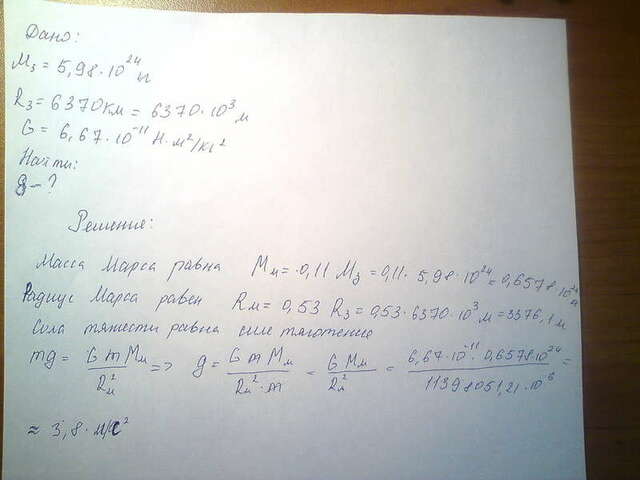 Дано:
Mз = 5,98·10²⁴ кг
Rз = 6370км = 6370·10³ м
G = 6,67·10⁻¹¹ Н·м²/кг²
Найти:
g — ?
Решение:
Масса Марса равна Mм = 0,11 Mз = 0,11 · 5,98·10²⁴ = 0,6578·10²⁴ кг
Радиус Марса равен Rм = 0,53 Rз = 0,53·6370·10³ м = 3376,1 м
Сила тяжести равна силе тяготения
mg = G m Mм / Rм² => g = G m Mм / Rм²·m = G Mм / Rм² = 6,67·10⁻¹¹·0,6578·10²⁴ / 11398051,21·10⁻⁶ =
≈ 3,8·м/с²